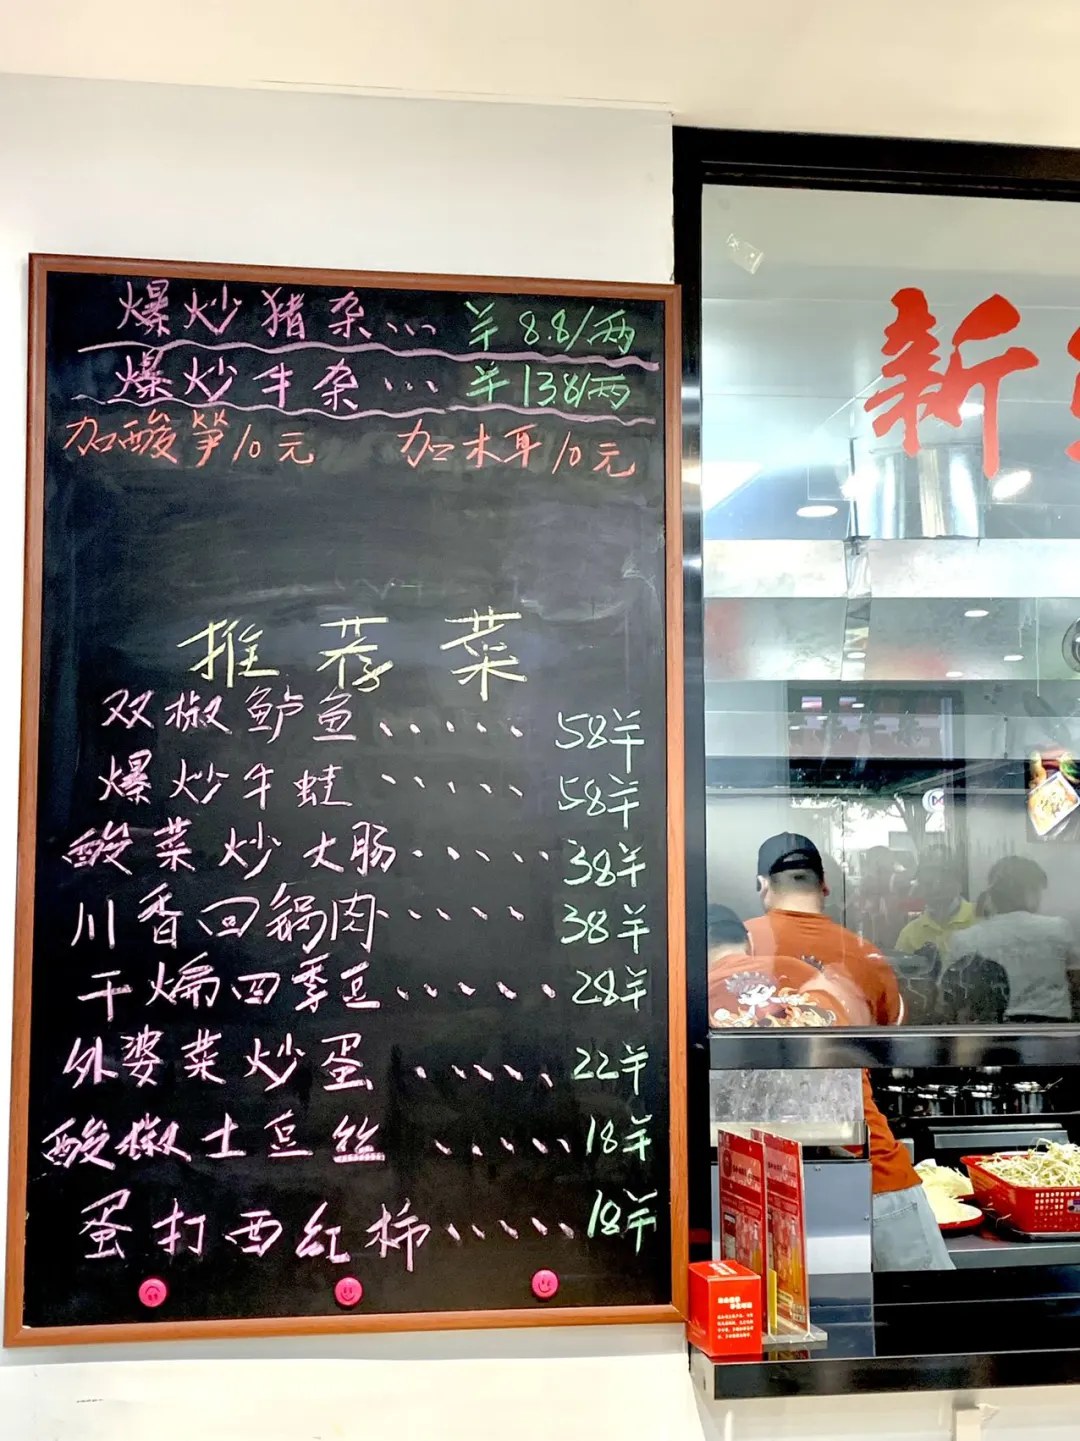 爆炒猪杂... ￥8.8/两
爆炒牛杂... ￥13.8/两
加酸笋10元 加木耳10元
推荐菜
双椒鲈鱼...... 58￥
爆炒牛蛙..... 58￥
酸菜炒大肠..... 38￥
川香回锅肉..... 38￥
干煸四季豆..... 28￥
外婆菜炒蛋..... 22￥
酸椒土豆丝..... 18￥
蛋打西红柿..... 18￥
新